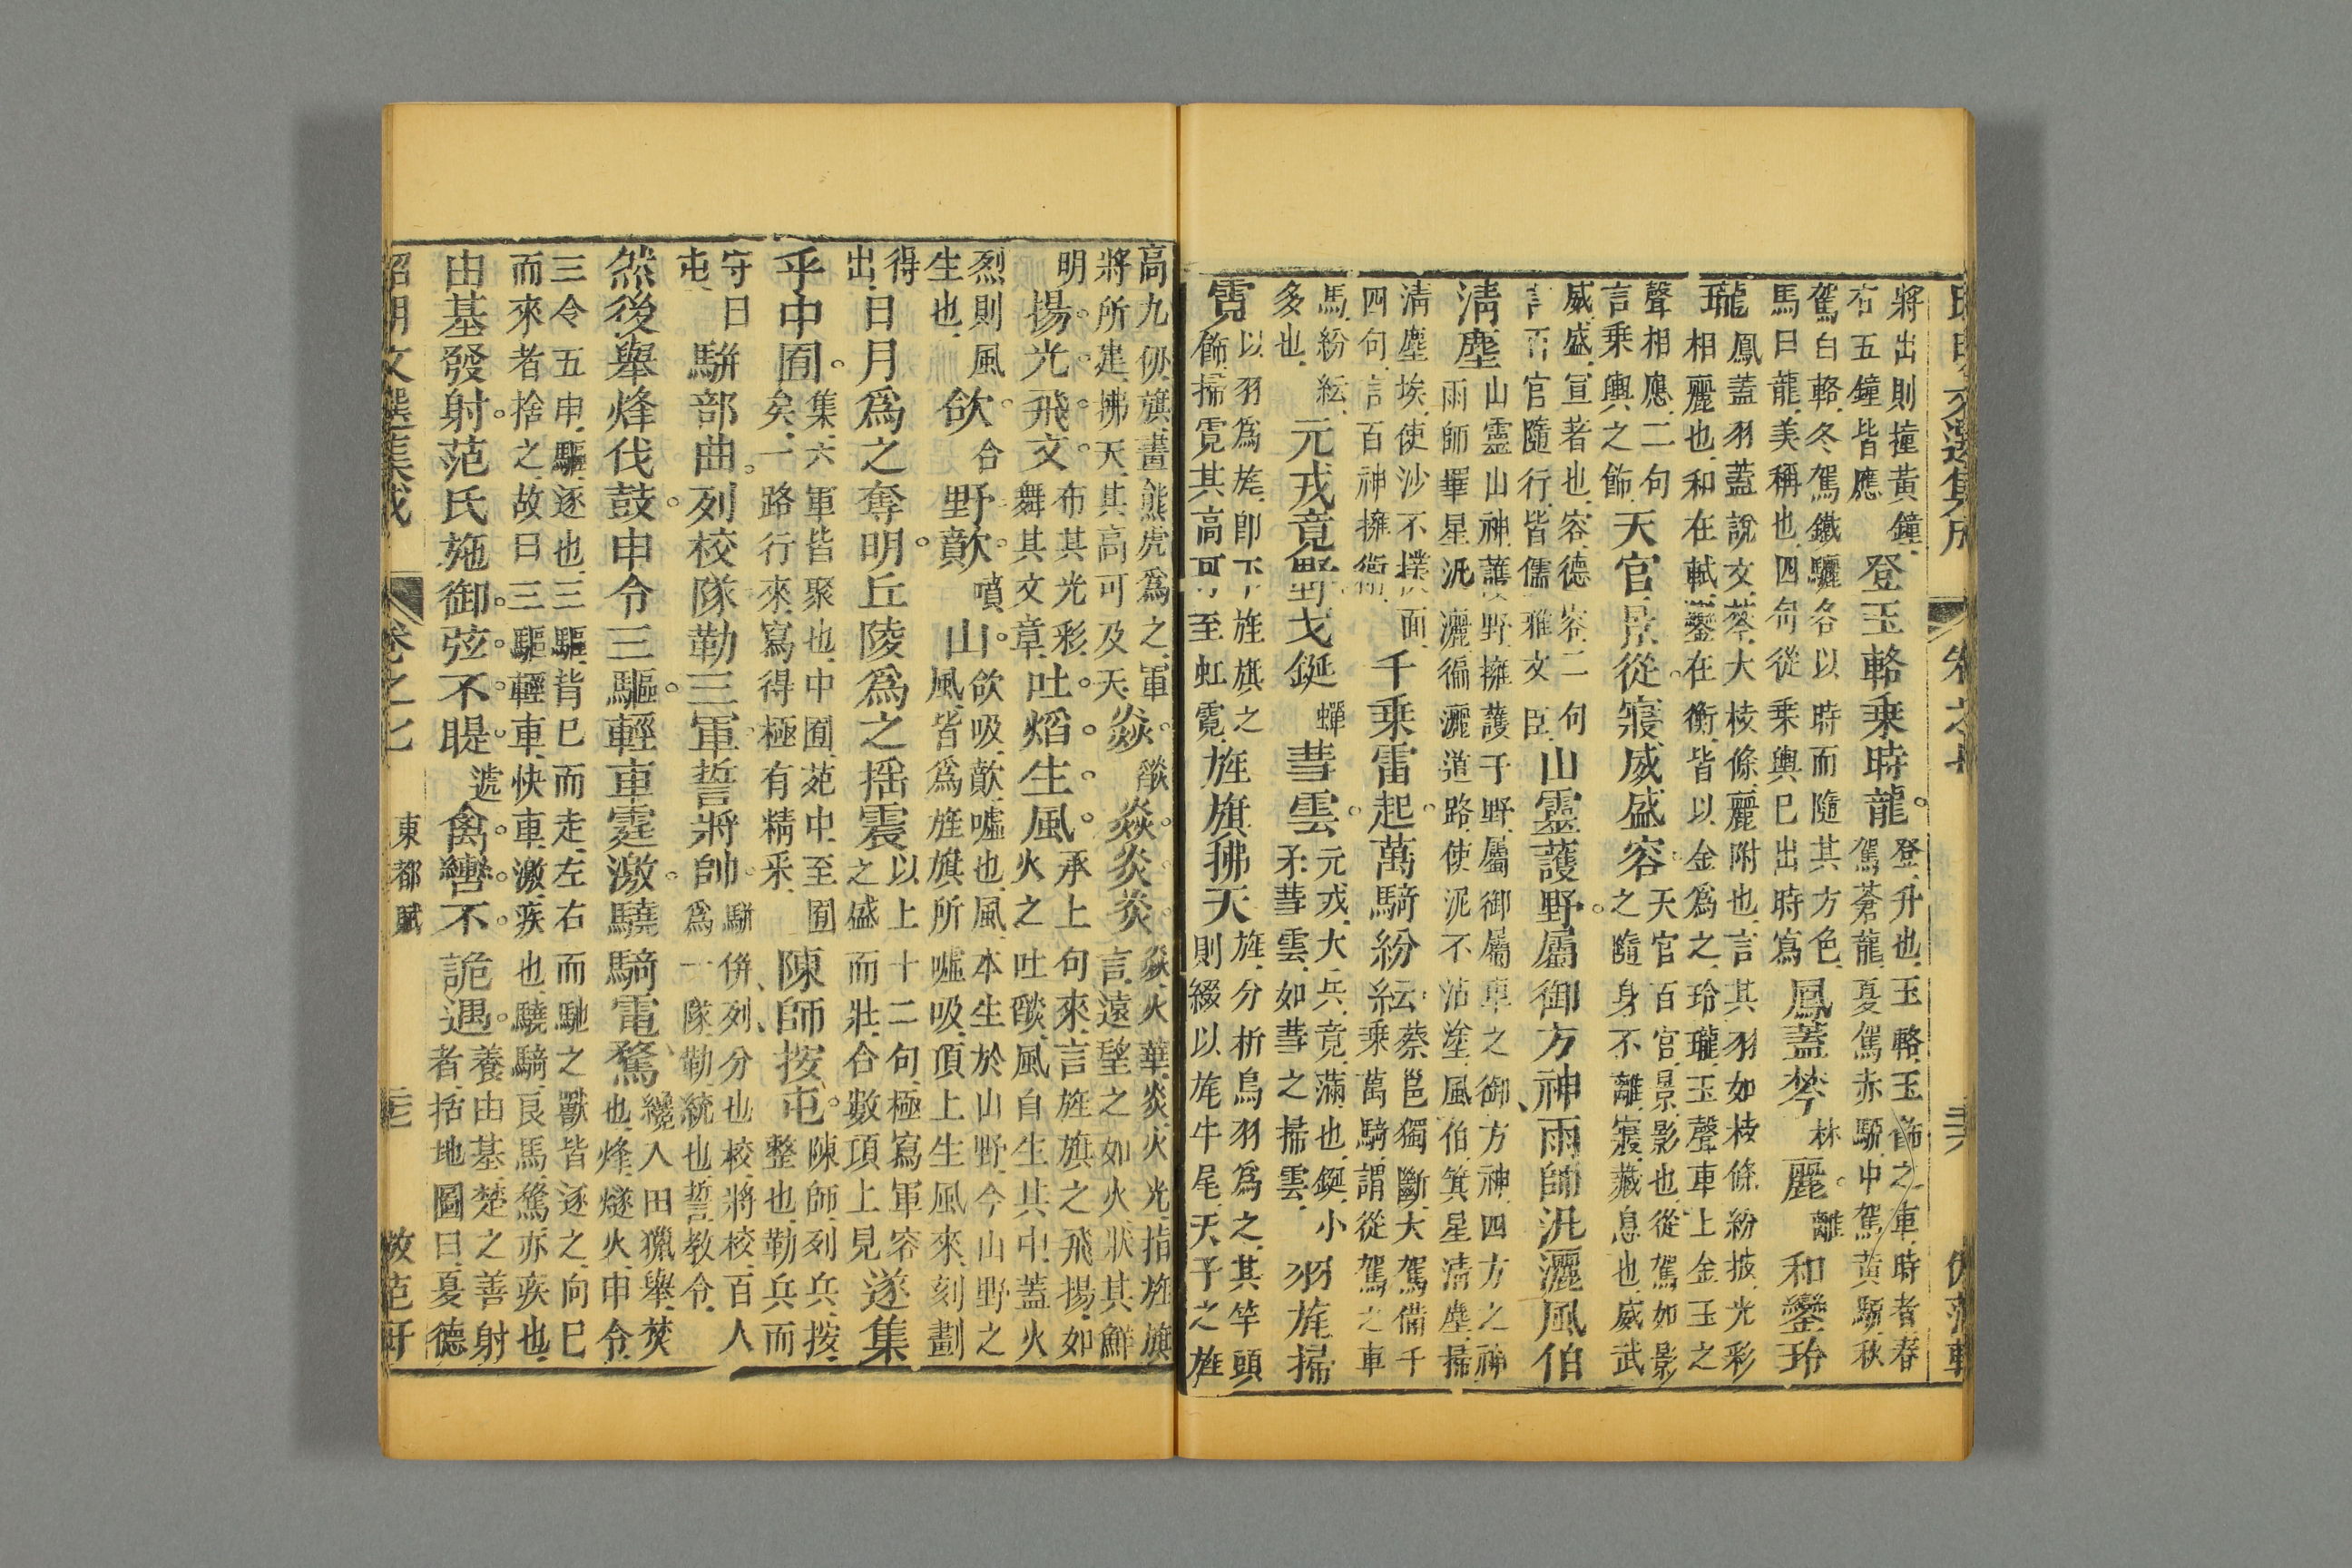 昭明文選集成 卷之七
將出則撞黃鐘
右五鐘皆應
登玉輅乘時龍。
登升也玉輅玉飾之車時者春
駕蒼龍夏駕赤騮中駕黃騮秋
駕白輅冬駕鐵驪各以時而隨其方色
馬曰龍美稱也四句從乘輿已出時寫
鳳蓋棽
林
麗。
離
和鑾玲
瓏
鳳蓋羽蓋說文棽大枝條麗附也言其羽如枝條紛披光彩
相麗也和在軾鑾在衡皆以金爲之玲瓏玉聲車上金玉之
聲相應二句
言乘輿之飾
天官景從。寢威盛容。
天官百官景影也從駕如影
之隨身不離寢藏息也威武
威盛宣著也容德容二句
言百官隨行皆儒雅文臣
山靈護野。屬御方神雨師汎灑風伯
清塵
山靈山神護野擁護于野屬御屬車之御方神四方之神
雨師畢星汎灑徧灑道路使泥不沾塗風伯箕星清塵掃
清塵埃使沙不撲面
四句言百神擁衛
千乘雷起。萬騎紛紜
蔡邕獨斷大駕備千
乘萬騎謂從駕之車
馬紛紜
多也
元戎竟野戈鋋
蟬
彗雲。
元戎大兵竟滿也鋋小
矛彗雲如彗之掃雲
羽旄掃
霓
以羽爲旄卽下旌旗之
飾掃霓其高可至虹霓
旌旗拂天
旌分析鳥羽爲之其竿頭
則綴以旄牛尾天子之旌
高九仞旗畫熊虎爲之軍
將所建拂天其高可及天
焱。
燄
焱。炎炎
焱火華炎火光指旌旗
言遠望之如火狀其鮮
明
揚。光。飛。文。
布其光彩
舞其文章
吐。熖。生。風。
承上句來言旌旗之飛揚如
火之吐燄風自生其中蓋火
烈則風
生也
欱。
合
野歕。
噴
山。
欱吸歕噓也風本生於山野今山野之
風皆爲旌旗所噓吸頂上生風來刻劃
得
出
日月爲之奪明。丘陵爲之搖震
以上十二句極寫軍容
之盛而壯合數項上見
遂集
乎中囿。
集六軍皆聚也中囿苑中至囿
矣一路行來寫得極有精釆
陳師按屯。
陳師列兵按
整也勒兵而
守曰
屯
駢部曲。列校隊勒三軍誓將帥。
駢併列分也校將校百人
爲一隊勒統也誓教令
然後舉烽伐鼓。申令三驅。輕車霆激。驍騎電騖
纔入田獵舉焚
也烽燧火申令
三令五申驅逐也三驅背已而走左右而馳之獸皆逐之向已
而來者捨之故曰三驅輕車快車激疾也驍騎良馬騖亦疾也
由基發射。范氏施御。弦。不。睼。
遞
禽。轡。不。詭遇。
養由基楚之善射
者括地圖曰夏德
昭明文選集成 卷之七 東都賦